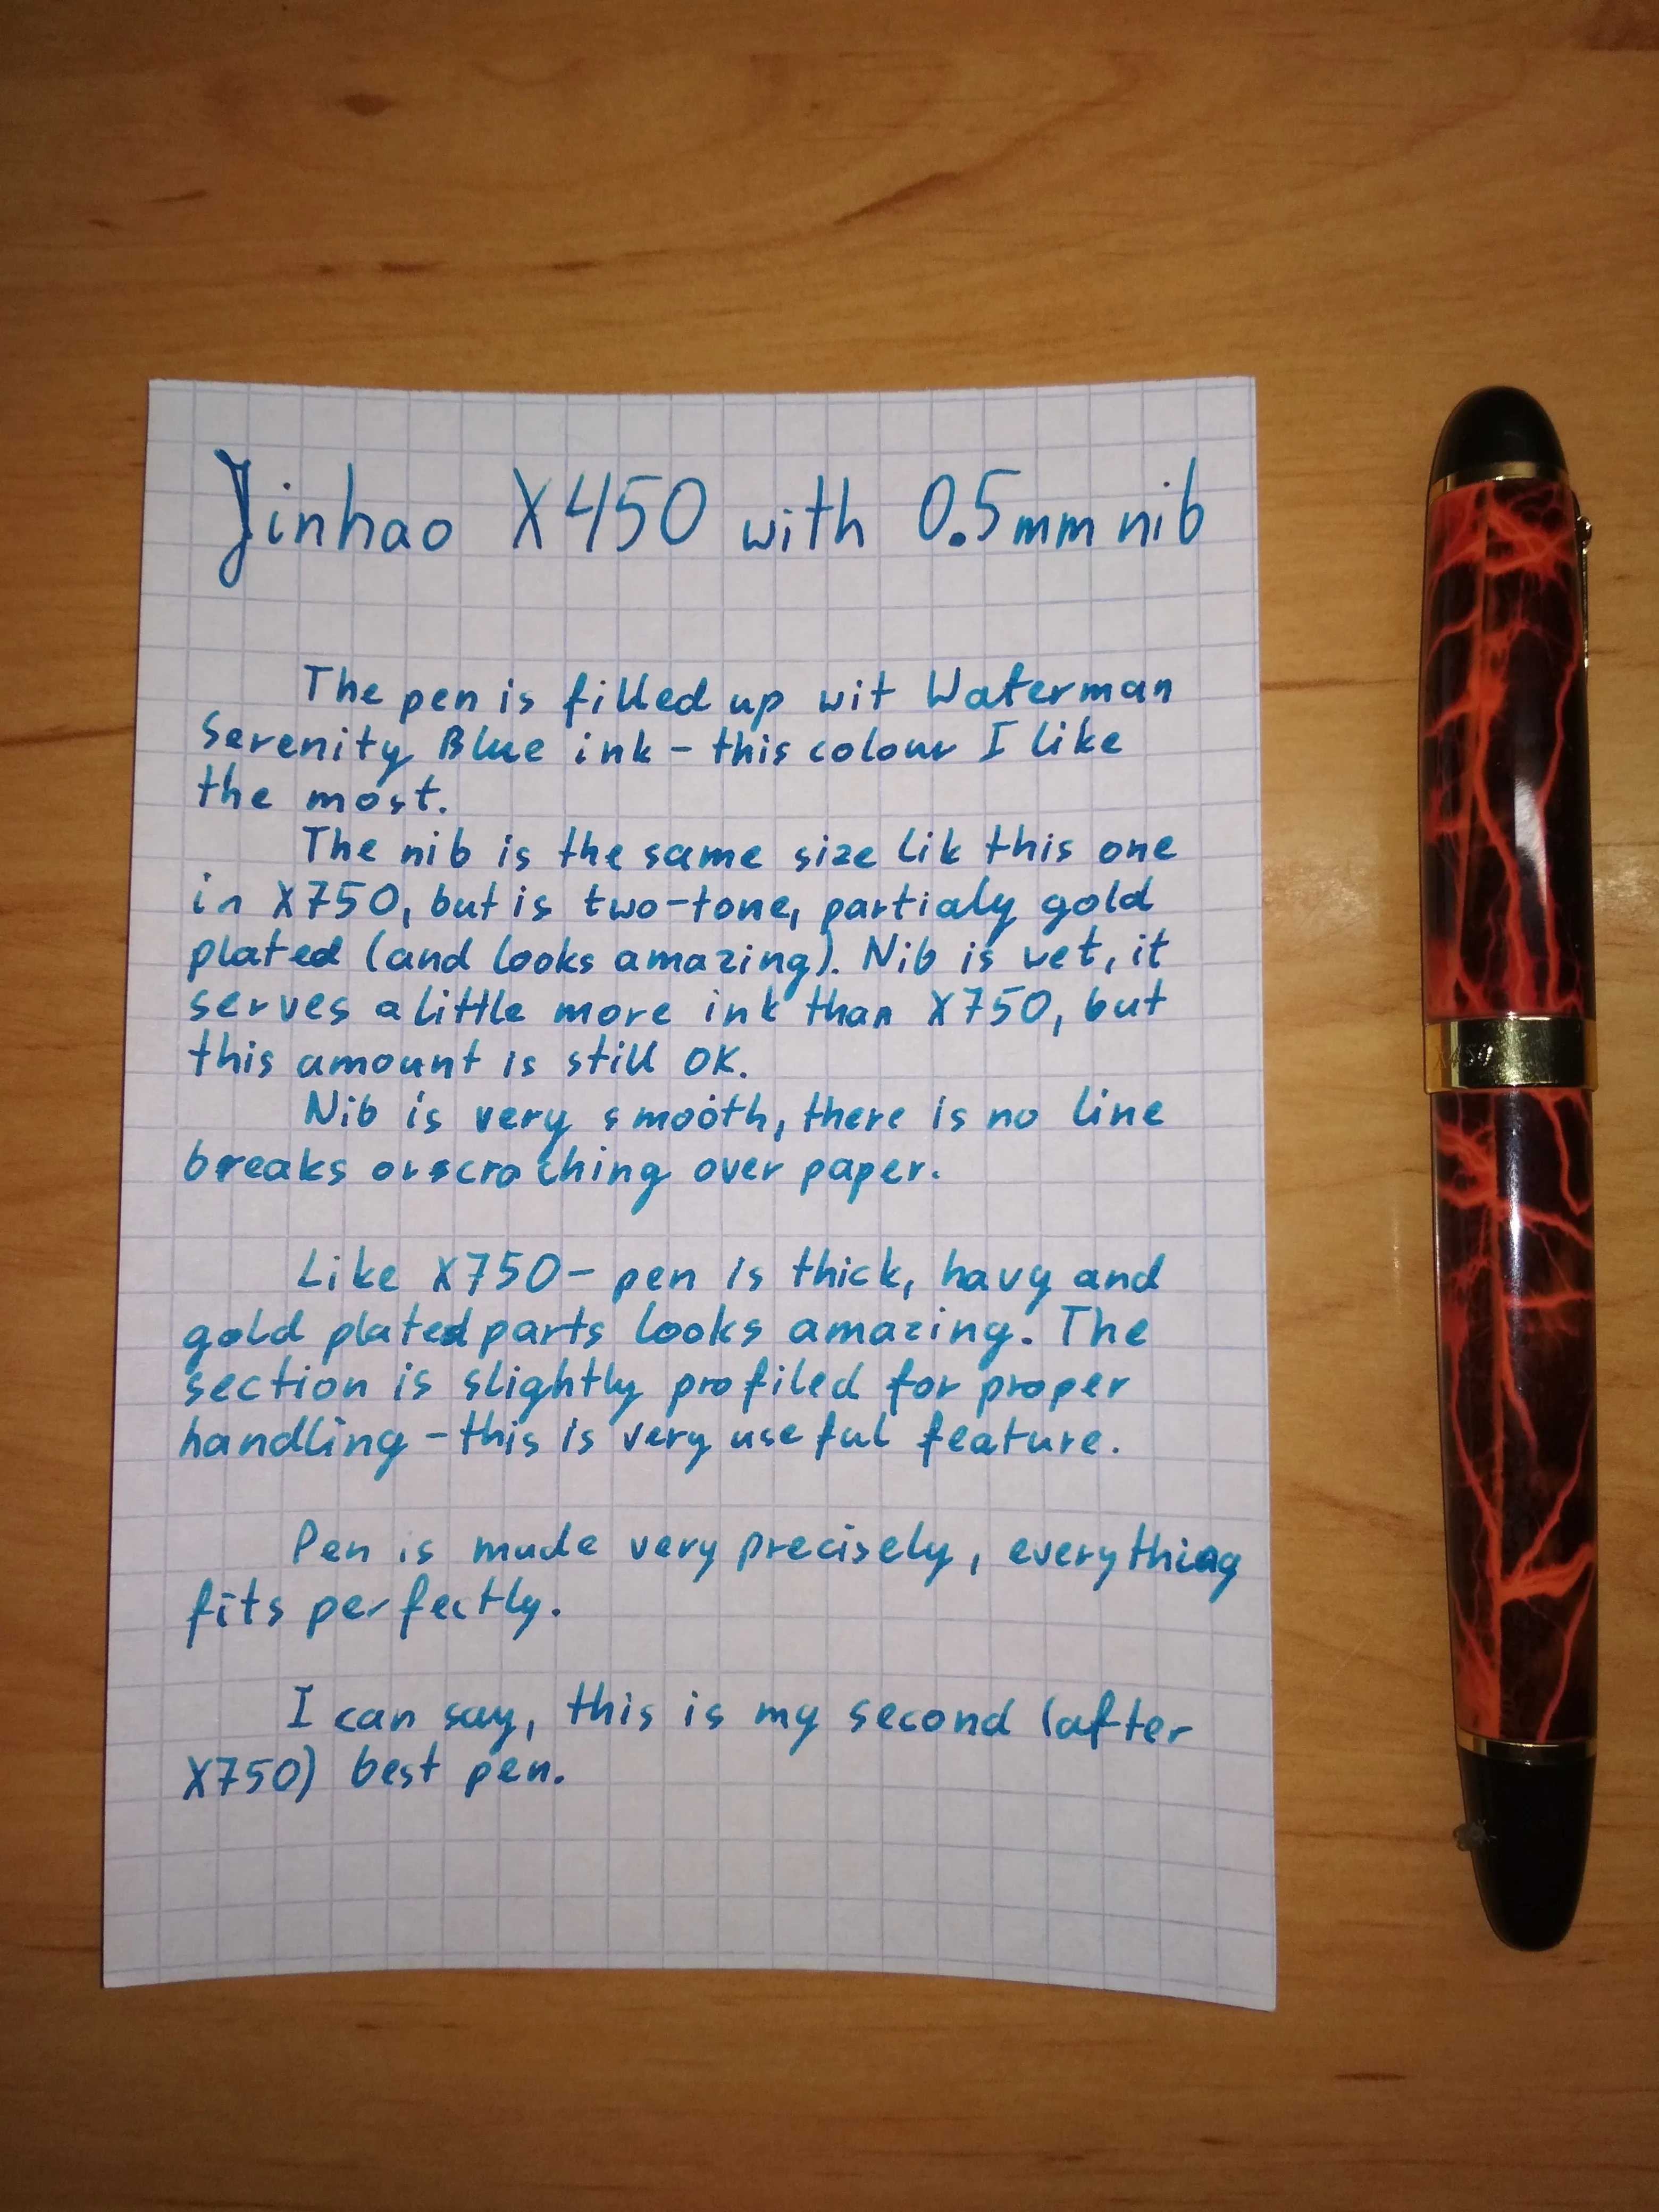 Jinhao X450 with 0.5mm nib
The pen is filled up wit Waterman
Serenity Blue ink - this colour I like
the most.
The nib is the same size lik this one
in X750, but is two-tone, partialy gold
plated (and looks amazing). Nib is vet, it
serves a little more ink than X750, but
this amount is still OK.
Nib is very smooth, there is no line
breaks or scraching over paper.
Like X750 - pen is thick, havy and
gold plated parts looks amazing. The
section is slightly profiled for proper
handling - this is very useful feature.
Pen is made very precisely, everything
fits perfectly.
I can say, this is my second (after
X750) best pen.
X450